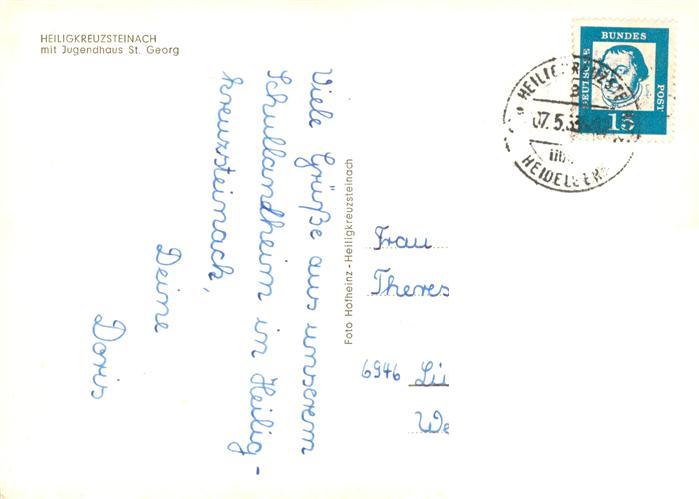 HEILIGKREUZSTEINACH
mit Jugendhaus St. Georg
Viele Grüße aus unserem
Schullandheim in Heilig-
kreuzsteinach,
Deine
Doris
Foto Hofheinz - Heiligkreuzsteinach
Frau
Theres
6946 Lü
We
DEUTSCHE
BUNDES
POST
15
07.5.
HEIDELBERG